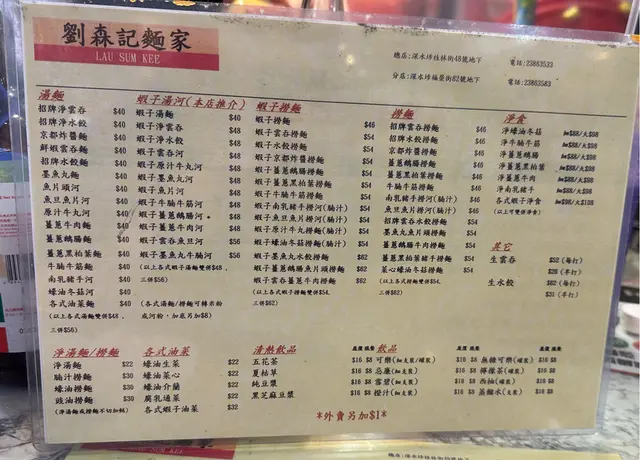 劉森記麵家
LAU SUM KEE
總店:深水埗桂林街48號地下 電話:23863533
分店:深水埗福榮街82號地下 電話:23863583
湯麵
招牌淨雲吞 $40
招牌淨水餃 $40
京都炸醬麵 $40
鮮蝦雲吞麵 $40
招牌水餃麵 $40
墨魚丸麵 $40
魚片頭河 $40
魚豆魚片河 $40
原汁牛丸河 $40
薑蔥牛肉麵 $40
薑蔥鵝腸麵 $40
薑蔥黑柏葉麵 $40
牛腩牛筋麵 $40
南乳豬手河 $40
蠔油冬菇河 $40
各式油菜麵 $40
(以上各式湯麵雙併$48,
三併$56)
蝦子湯河(本店推介)
蝦子湯麵 $40
蝦子淨雲吞 $48
蝦子淨水餃 $48
蝦子雲吞河 $48
蝦子原汁牛丸河 $48
蝦子墨魚丸河 $48
蝦子魚片河 $48
蝦子牛腩牛筋河 $48
蝦子薑蔥鵝腸河 $48
蝦子薑蔥牛河 $48
蝦子雲吞魚豆河 $56
蝦子墨魚丸牛腩河 $56
(以上各式蝦子湯麵雙併$48,
三併$56)
(各式湯麵/撈麵可轉米粉
或河粉,加底另加$8)
蝦子撈麵
蝦子撈麵 $46
蝦子雲吞撈麵 $54
蝦子水餃撈麵 $54
蝦子京都炸醬撈麵 $54
蝦子薑蔥鵝腸撈麵 $54
蝦子薑蔥黑柏葉撈麵 $54
蝦子牛腩牛筋撈麵 $54
蝦子南乳豬手撈河(腩汁) $54
蝦子魚豆魚片撈河(腩汁) $54
蝦子原汁牛丸撈麵(腩汁) $54
蝦子蠔油冬菇撈麵(腩汁) $54
蝦子墨魚丸水餃撈麵 $62
蝦子薑蔥鵝腸魚片頭撈麵 $62
蝦子雲吞薑蔥牛肉撈麵 $62
(以上各式蝦子撈麵雙併$54,
三併$62)
撈麵
招牌雲吞撈麵 $46
招牌水餃撈麵 $46
京都炸醬撈麵 $46
薑蔥鵝腸撈麵 $46
薑蔥黑柏葉撈麵 $46
牛腩牛筋撈麵 $46
南乳豬手撈河(腩汁) $46
魚豆魚片撈河(腩汁) $46
招牌雲吞水餃撈麵 $54
墨魚丸薑蔥撈麵 $54
薑蔥鵝腸牛肉撈麵 $54
菜心蠔油冬菇撈麵 $54
(以上各式撈麵雙併$54,
三併$62)
淨食
淨蠔油冬菇 細$88/大$98
淨牛腩牛筋 細$88/大$98
淨薑蔥鵝腸 細$88/大$98
淨薑蔥黑柏葉 細$88/大$98
淨薑蔥牛肉 細$88/大$98
淨南乳豬手 細$88/大$98
各式蝦子淨食 細$98/大$108
(以上可雙併淨食)
其它
生雲吞 $52 (每打)
$26 (半打)
生水餃 $62 (每打)
$31 (半打)
淨湯麵/撈麵
淨湯麵 $22
腩汁撈麵 $30
蠔油撈麵 $30
豉油撈麵 $30
(淨湯麵或撈麵不切加餸)
各式油菜
蠔油生菜 $22
蠔油菜心 $22
蠔油介蘭 $22
腐乳通菜 $22
各式蝦子油菜 $32
清熱飲品
五花茶 $16 $8
夏枯草 $16 $8
純豆漿 $16 $8
黑芝麻豆漿 $16 $8
飲品
可樂(細支裝/罐裝) $16 $8
忌廉(細支裝) $16 $8
雪碧(細支裝) $16 $8
橙汁(細支裝) $16 $8
無糖可樂(罐裝)
檸檬茶(罐裝)
西柚(罐裝)
蒸餾水(支裝)
*外賣另加$1*